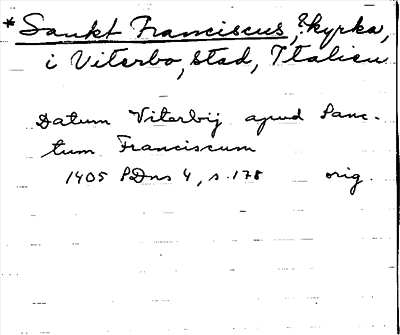 * Sankt Franciscus, ? kyrka,
i Viterbo, stad, Italien
Datum Viterbij apud Sanc-
tum Franciscum
1405 PDns 4, s. 178 orig.